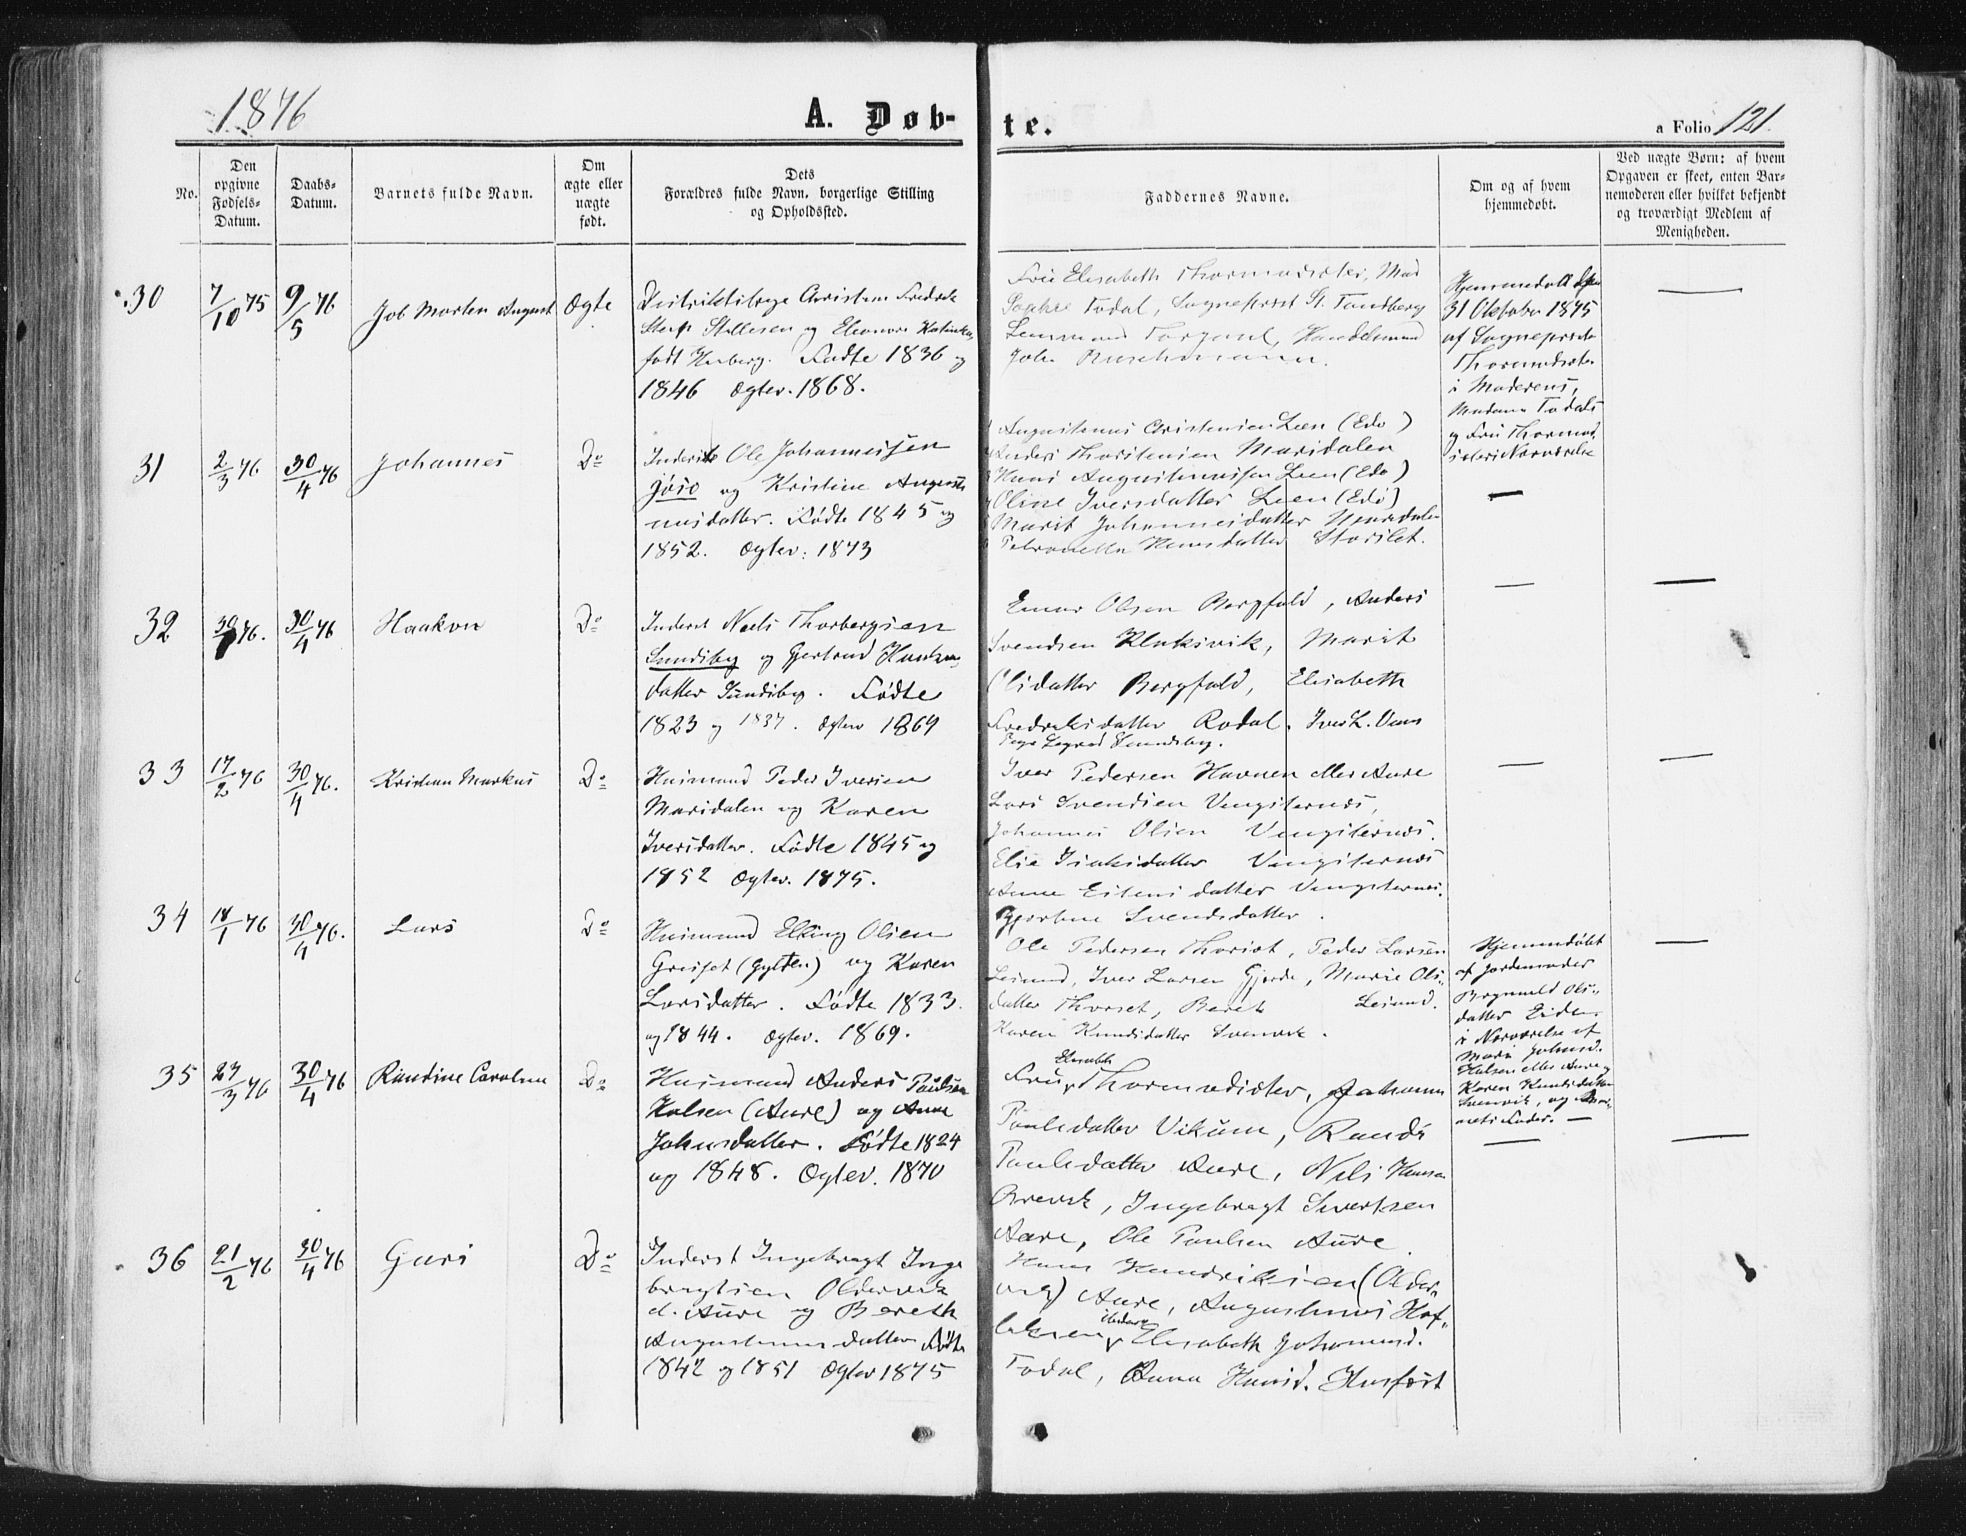 1876
A. Døb-
te.
a Folio 121.
No.
Den opgivne Fødsels-Datum.
Daabs-Datum.
Barnets fulde Navn.
Om ægte eller uægte født.
Dets Forældres fulde Navn, borgerlige Stilling og Opholdssted.
Faddernes Navne.
Om og af hvem hjemmedøbt.
Ved uægte Børn: af hvem Opgaven er skeet, enten Barnemoderen eller hvilket bekjendt og troværdigt Medlem af Menigheden.
30
7/10 75
9/5 76
Job Morten August
Ægte
Distriktslæge Christian Fredrik
Steffensen og Eleonore
født Herberg. Fødte 1836 og
1846 Ægtev. 1868.
Frue Elisabeth Thormodsæter, Mad
Todal, Sogneprest St. Tandberg
Lensmand Handelsmand
Joh. Buschmann.
Hjemmedøbt den
31 Oktober 1875
af Sogneprest
Thormodsæter
i Moderens,
Madame Todals
og Fru Thormod
sæters Nærværelse
31
2/3 76
30/4 76
Johannes
Do
Inderst Ole Johannessen
Jøsø og Kristine Augusti
nusdatter. Fødte 1845 og
1852. Ægtev: 1873
Augustinus Christensen Leen (Edø)
Anders Thorstensen Maridalen
Hans Augustinussen Leen (Edø)
Oline Iversdatter Leen (Edø)
Marit Johannesdatter
Petronella Hansdatter Storslet.
32
30/ 76.
30/4 76
Haakon
Do
Inderst Niels Thorbergsen
Sundsby og Gjertrud Haakon
datter Sundsby. Fødte
1823 og 1837. Ægtev 1869
Einar Olsen Bergfald, Anders
Svendsen Kluksvik, Marit
Olsdatter Bergfald, Elisabeth
Fredriksdatter Rodal. Iver L.
Sundsby.
33
17/2 76
30/4 76.
Kristian Markus
Do
Huusmand Peder Iversen
Maridalen og Karen
Iversdatter. Fødte 1845 og
1852 Ægtev. 1875.
Iver Pedersen Havnen eller Aure
Lars Svendsen Vengsternes,
Johannes Olsen Vengsternes.
Elie Isaksdatter Vengsternes
Anne Estensdatter Vengsternes.
Gjertine Svendsdatter.
34
18/1 76
30/4 76.
Lars
Do
Huusmand Elling Olsen
Greiset (Gylten) og Karen
Larsdatter. Fødte 1833.
og 1844. Ægtev. 1869.
Ole Pedersen Thorset, Peder Larsen
Leirund, Iver Larsen Gjerde, Marie Ols-
datter Thorset, Beret Leirund.
Karen Knudsdatter Svenvik.
Hjemmedøbt
af Jordemoder
Brynild Ols-
datter Eiden
i Nærværelse af
Marie Johnsd.
Halsen eller Aure og
Karen Knudsdatter
Svenvik, og Bar-
nets Fader.
35
27/3 76
30/4 76
Randine Caroline
Do
Huusmand Anders Paulsen
Halsen (Aure) og Anne
Johnsdatter. Fødte 1824
og 1848. Ægtev. 1870
Elisabeth
Fru Thormodsæter, Johanna
Paulsdatter Vikum, Randi
Paulsdatter Aure, Nils Hansen
Brevik, Ingebregt Sivertsen
Aure, Ole Paulsen Aure.
36
21/2 76
30/4 76
Guri
Do
Inderst Ingebregt Inge
bregtsen Oldervik
d. Aure og Bereth
Augustinusdatter Fødte
1842 og 1851 Ægtev 1875
Hans Hendriksen (Older-
vig) Aure, Augustinus
Elisabeth Johannesd.
Todal, Anna Hansd. Husfest